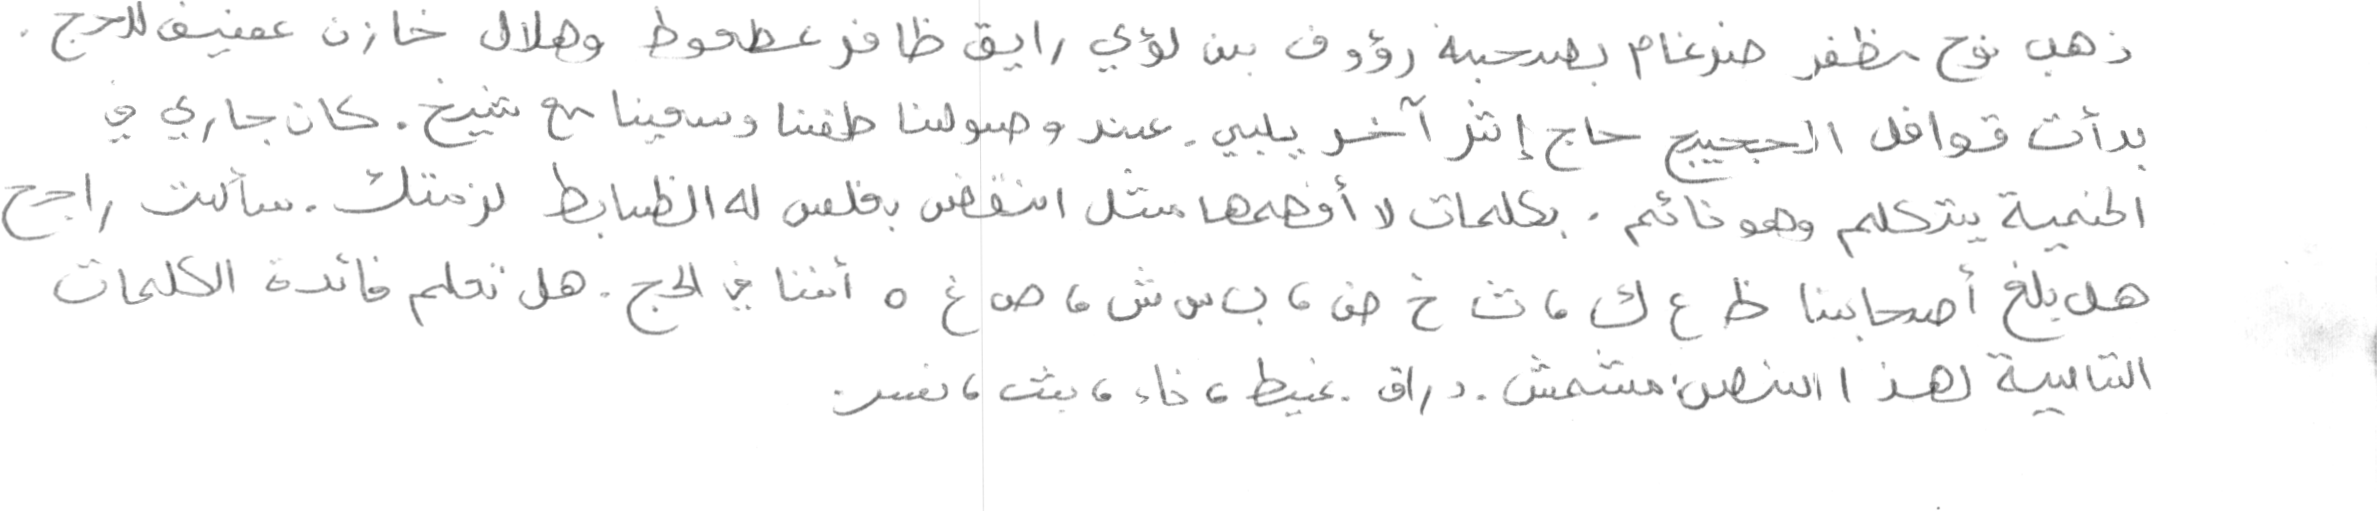 ذهب نوح مظفر ضرغام بصحبة رؤوف بن لؤي رايق ظافر عطعوط وهلال خازن عفيف للحج .
بدأت قوافل الحجيج حاج إثر آخر يلبي . عند وصولنا طفنا وسعينا مع شيخ . كان جاري في
الخيمة يتكلم وهو نائم . بكلمات لا أفهمها مثل انقض بغلس له الظابط لزمتك . سألت راجح
هل بلغ أصحابنا ظ ع ك ، ث خ ض ، ب س ش ، ص غ ه أننا في الحج . هل تعلم فائدة الكلمات
التالية لهذا النص: مشمش . دراق . غيظ ، خاء ، بث ، نفسر .